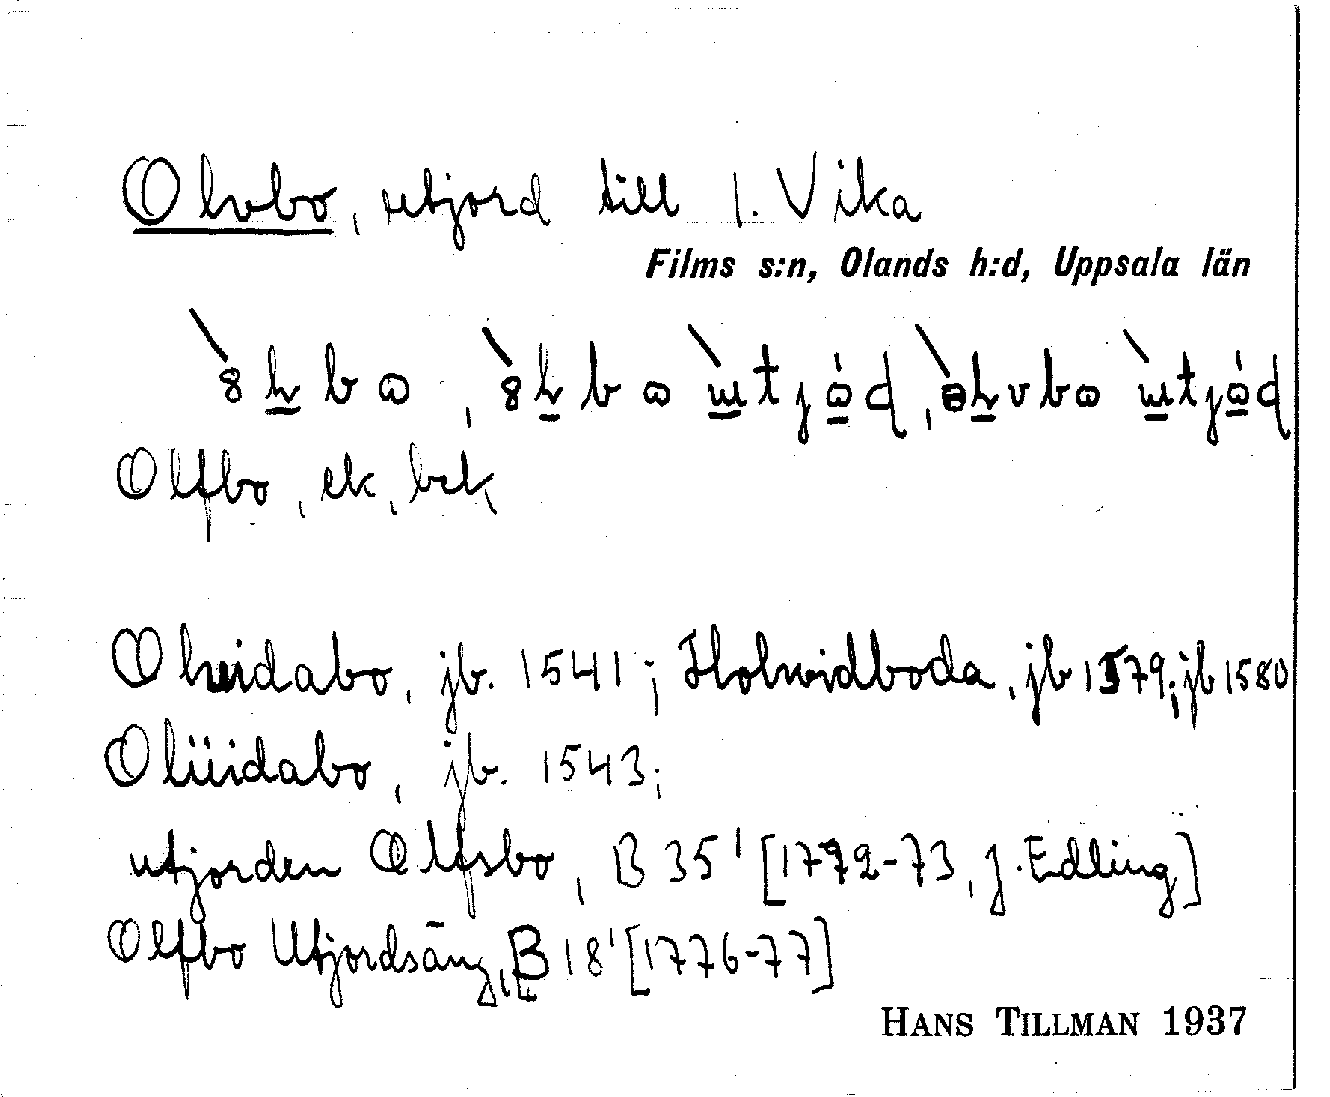 Olvbo, utjord till 1. Vika
Films s:n, Olands h:d, Uppsala län
Olfbo, ek, bek,
Olvidabo, jb. 1541; Holvidboda, jb 1579; jb 1580
Olüidabo, jb. 1543;
utjorden Olfsbo, B 35' [1772-73, J. Edling]
Olfbo Utjordsäng, B 18' [1776-77]
HANS TILLMAN 1937